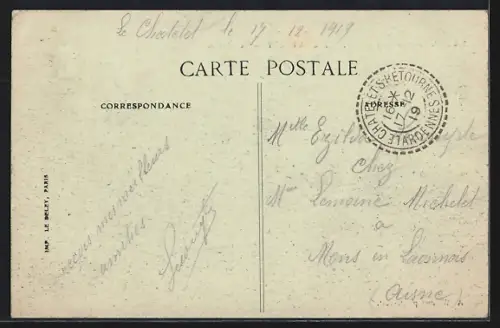 Le Chatelet le 17-12-1919
CARTE POSTALE
CORRESPONDANCE
ADRESSE
LE CHATELET-S-RETOURNE
16 *
17-12
19
ARDENNES
Melle
chez
Mme Lemoine Michelet
à
Mons en Laonnois
(Aisne)
reçois mes meilleurs
amitiés
IMP. LE DELEY, PARIS